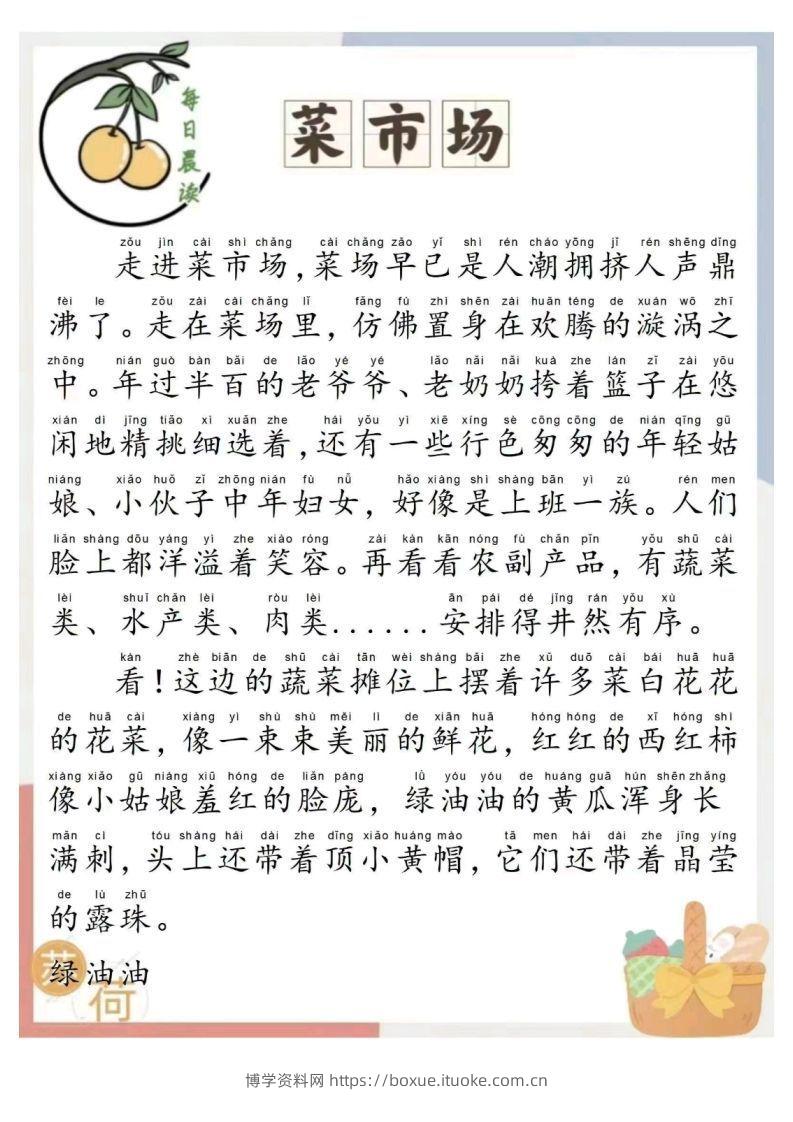 每日晨读
菜市场
zǒu jìn cài shì chǎng cài chǎng zǎo yǐ shì rén cháo yōng jǐ rén shēng dǐng
走进菜市场，菜场早已是人潮拥挤人声鼎
fèi le zǒu zài cài chǎng lǐ fǎng fú zhì shēn zài huān téng de xuán wō zhī
沸了。走在菜场里，仿佛置身在欢腾的漩涡之
zhōng nián guò bàn bǎi de lǎo yé yé lǎo nǎi nǎi kuà zhe lán zǐ zài yōu
中。年过半百的老爷爷、老奶奶挎着篮子在悠
xián dì jīng tiāo xì xuǎn zhe hái yǒu yì xiē xíng sè cōng cōng de nián qīng gū
闲地精挑细选着，还有一些行色匆匆的年轻姑
niáng xiǎo huǒ zǐ zhōng nián fù nǚ hǎo xiàng shì shàng bān yì zú rén men
娘、小伙子中年妇女，好像是上班一族。人们
liǎn shàng dōu yáng yì zhe xiào róng zài kàn kān nóng fù chǎn pǐn yǒu shū cài
脸上都洋溢着笑容。再看看农副产品，有蔬菜
lèi shuǐ chǎn lèi ròu lèi ān pái dé jǐng rán yǒu xù
类、水产类、肉类......安排得井然有序。
kàn zhè biān de shū cài tān wèi shàng bǎi zhe xǔ duō cài bái huā huā
看！这边的蔬菜摊位上摆着许多菜白花花
de huā cài xiàng yì shù shù měi lì de xiān huā hóng hóng de xī hóng shì
的花菜，像一束束美丽的鲜花，红红的西红柿
xiàng xiǎo gū niáng xiū hóng de liǎn páng lǜ yóu yóu de huáng guā hún shēn zhǎng
像小姑娘羞红的脸庞，绿油油的黄瓜浑身长
mǎn cì tóu shàng hái dài zhe dǐng xiǎo huáng mào tā men hái dài zhe jīng yíng
满刺，头上还带着顶小黄帽，它们还带着晶莹
de lù zhū
的露珠。
绿油油
荷
博学资料网 https://boxue.ituoke.com.cn